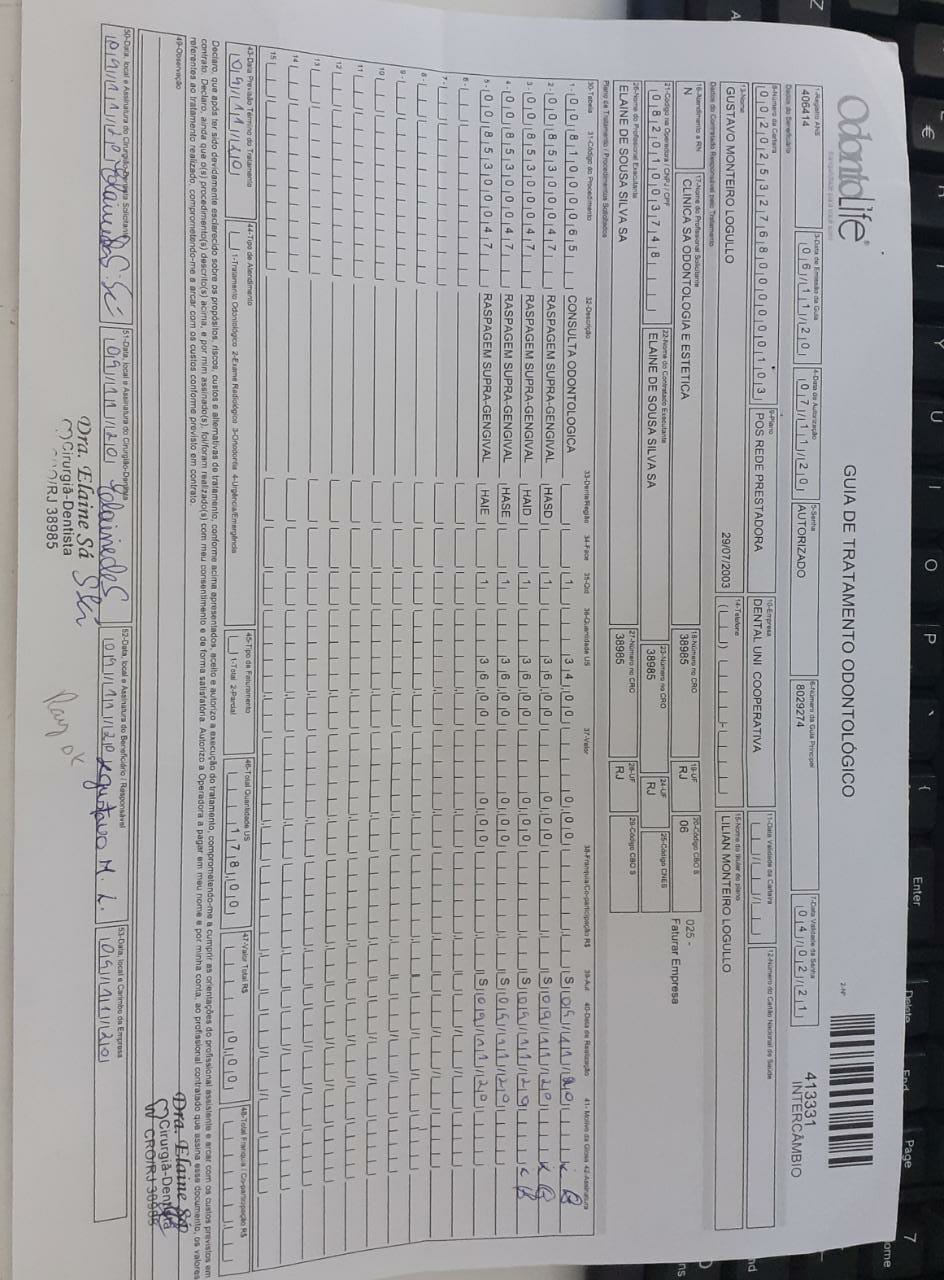 OdontoLife®
GUIA DE TRATAMENTO ODONTOLÓGICO
2-Nº
413331
INTERCÂMBIO
1-Registro ANS
406414
3-Data de Emissão da Guia
06/11/20
4-Data da Autorização
07/11/20
5-Senha
AUTORIZADO
6-Número da Guia Principal
8029274
7-Data Validade da Senha
04/02/21
Dados do Beneficiário
8-Número da Carteira
00202532768000000103
9-Plano
POS REDE PRESTADORA
10-Empresa
DENTAL UNI COOPERATIVA
11-Data Validade da Carteira
12-Número do Cartão Nacional de Saúde
13-Nome
GUSTAVO MONTEIRO LOGULLO
29/07/2003
14-Telefone
15-Nome do titular do plano
LILIAN MONTEIRO LOGULLO
Dados do Contratado Responsável pelo Tratamento
16-Atendimento a RN
N
17-Nome do Profissional Solicitante
CLINICA SA ODONTOLOGIA E ESTETICA
18-Número no CRO
38985
19-UF
RJ
20-Código CBO S
06
025 -
Faturar Empresa
21-Código na Operadora / CNPJ / CPF
08201003748
22-Nome do Contratado Executante
ELAINE DE SOUSA SILVA SA
23-Número no CRO
38985
24-UF
RJ
25-Código CNES
26-Nome do Profissional Executante
ELAINE DE SOUSA SILVA SA
27-Número no CRO
38985
28-UF
RJ
29-Código CBO S
Plano de Tratamento / Procedimentos Solicitados
30-Tabela 31-Código do Procedimento 32-Descrição 33-Dente/Região 34-Face 35-Qtd 36-Quantidade US 37-Valor 38-Franquia/Co-participação R$ 39-Aut 40-Data de Realização 41- Motivo da Glosa 42-Assinatura
1- 00 81000065 CONSULTA ODONTOLOGICA 1 34,00 0,00 S 09/11/20
2- 00 85300047 RASPAGEM SUPRA-GENGIVAL HASD 1 36,00 0,00 S 09/11/20
3- 00 85300047 RASPAGEM SUPRA-GENGIVAL HAID 1 36,00 0,00 S 09/11/20
4- 00 85300047 RASPAGEM SUPRA-GENGIVAL HASE 1 36,00 0,00 S 09/11/20
5- 00 85300047 RASPAGEM SUPRA-GENGIVAL HAIE 1 36,00 0,00 S 09/11/20
6-
7-
8-
9-
10
11
12
13
14
15
43-Data Previsão Término do Tratamento
09/11/20
44-Tipo de Atendimento
1-Tratamento Odontológico 2-Exame Radiológico 3-Ortodontia 4-Urgência/Emergência
45-Tipo de Faturamento
1-Total 2-Parcial
46-Total Quantidade US
178,00
47-Valor Total R$
0,00
48-Total Franquia / Co-participação R$
Declaro, que após ter sido devidamente esclarecido sobre os propósitos, riscos, custos e alternativas de tratamento, conforme acima apresentados, aceito e autorizo a execução do tratamento, comprometendo-me a cumprir as orientações do profissional assistente e arcar com os custos previstos em
contrato. Declaro, ainda que o(s) procedimento(s) descrito(s) acima, e por mim assinado(s), foi/foram realizado(s) com meu consentimento e de forma satisfatória. Autorizo a Operadora a pagar em meu nome e por minha conta, ao profissional contratado que assina esse documento, os valores
referentes ao tratamento realizado, comprometendo-me a arcar com os custos conforme previsto em contrato.
49-Observação
Dra. Elaine Sá
Cirurgiã-Dentista
CRO/RJ 38985
50-Data, local e Assinatura do Cirurgião-Dentista Solicitante
09/11/20
51-Data, local e Assinatura do Cirurgião-Dentista
09/11/20
52-Data, local e Assinatura do Beneficiário / Responsável
09/11/20 Gustavo M. L.
53-Data, local e Carimbo da Empresa
09/11/20
Dra. Elaine Sá
Cirurgiã-Dentista
CRO/RJ 38985
Enter
Page
End
7